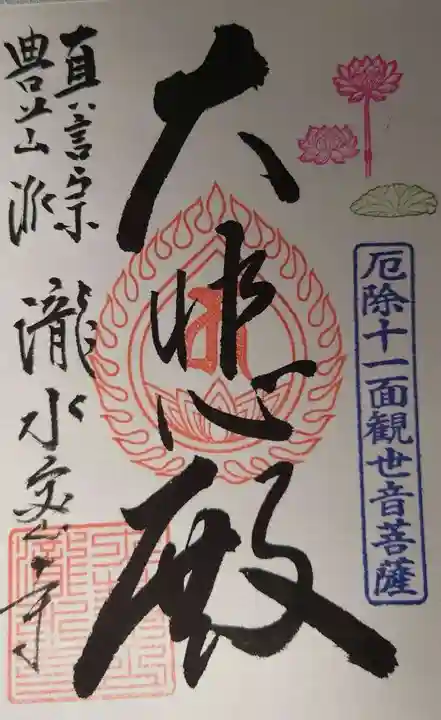 厄除十一面観世音菩薩
大悲殿
真言宗
豊山派
瀧水寺